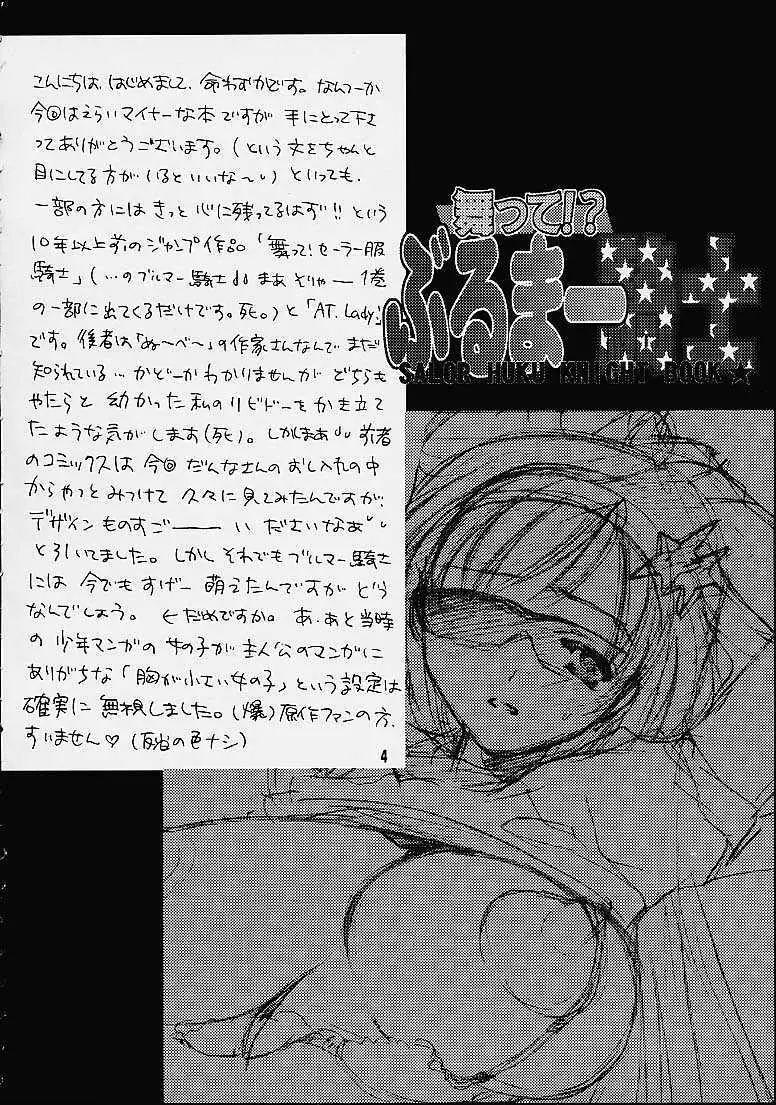 こんにちは、はじめまして、命わずかです。なんつーか
今回はえらいマイナーな本ですが 手にとって下さ
ってありがとうございます。(という文をちゃんと
目にしてる方が いるといいな〜) といっても、
一部の方には きっと 心に残ってるはず!! という
10年以上前のジャンプ作品「舞って!セーラー服
騎士」(…のブルマー騎士 まあ そりゃー 1巻
の一部に出てくるだけです。死。)と「AT. Lady」
です。後者は「ぬ〜べ〜」の作家さんなんで まだ
知られている… かどーか わかりませんが どちらも
やたらと 幼かった 私のリビドーを かき立て
たような気がします(死)。しかしまあ 前者
のコミックスは 今回 だんなさんの おし入れの中
からやっとみつけて 久々に見てみたんですが、
デザイン ものすごーーーい ださいなあ
とろいてました。しかし それでも ブルマー騎士
には 今でも すげー 萌えたんですが どう
なんでしょう。 ←だめですか。 あ、あと 当時
の 少年マンガの 女の子が 主人公のマンガに
ありがちな「胸が小さい女の子」という設定は
確実に 無視しました。(爆) 原作ファンの方、
すいません♡ (反省の色ナシ)
4
舞って!?
ぶるまー騎士
SALOR HUKU KNIGHT BOOK★